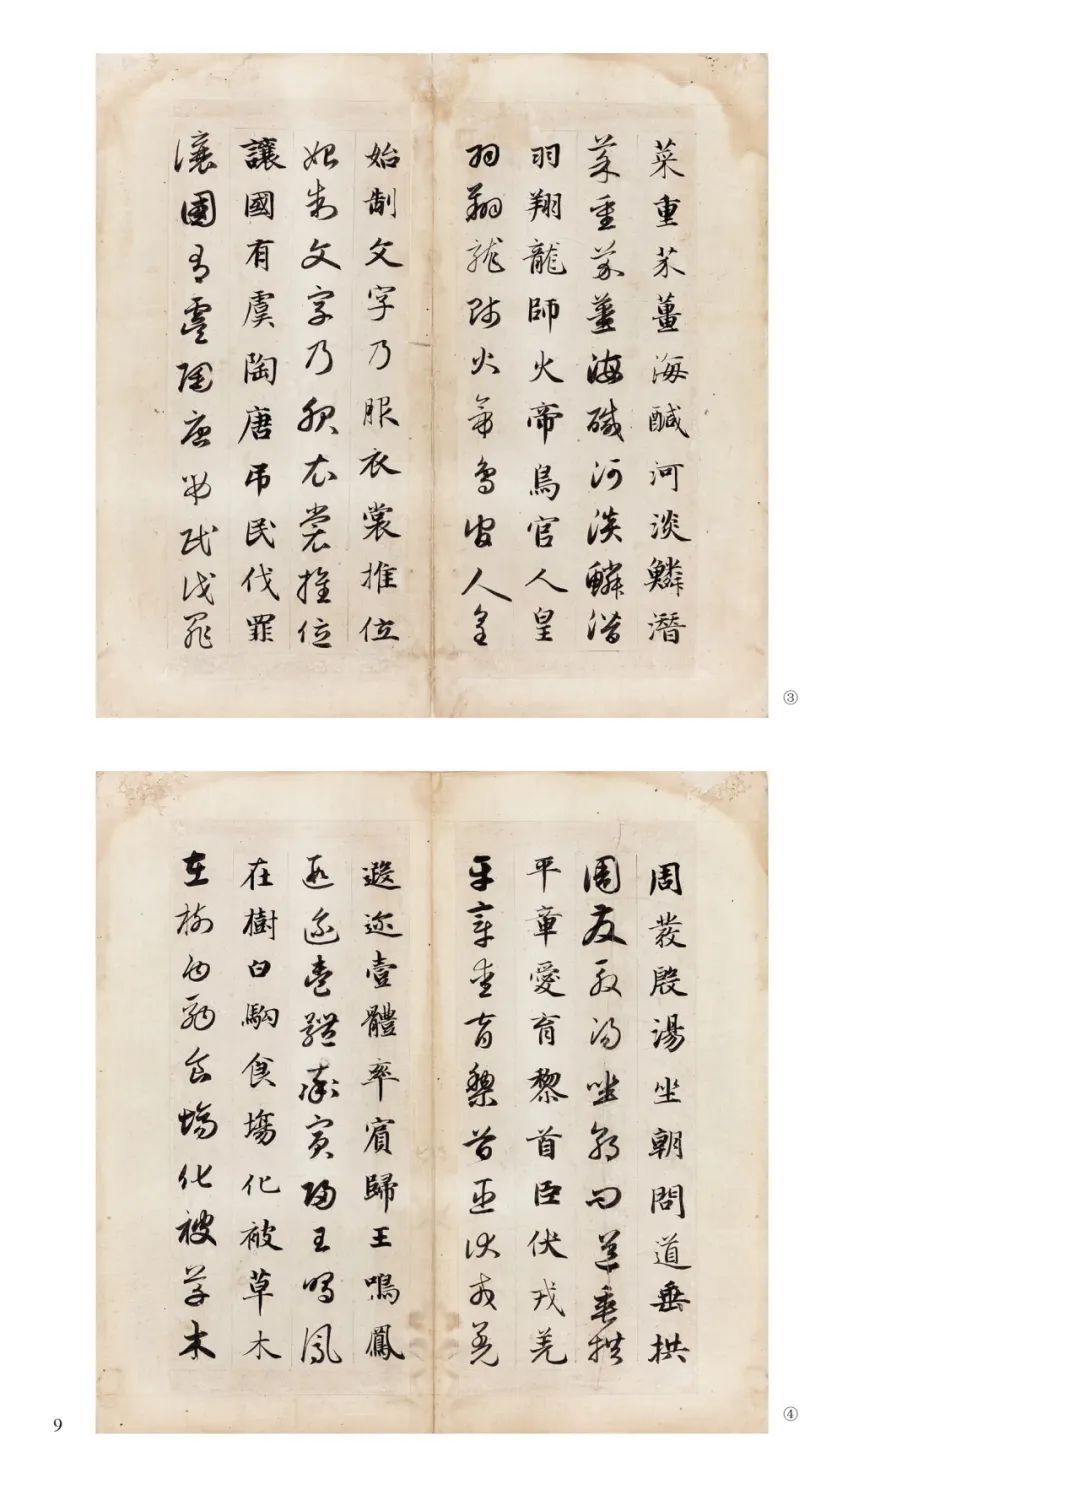 菜重芥薑海醎河淡鱗潛
菜重芥薑海醎河淡鱗潛
羽翔龍師火帝鳥官人皇
羽翔龍師火帝鳥官人皇
始制文字乃服衣裳推位
始制文字乃服衣裳推位
讓國有虞陶唐吊民伐罪
讓國有虞陶唐弔民伐罪
③
周發殷湯坐朝問道垂拱
周發殷湯坐朝問道垂拱
平章愛育黎首臣伏戎羌
平章愛育黎首臣伏戎羌
遐迩壹體率賓歸王鳴鳳
遐邇壹體率賓歸王鳴鳳
在樹白駒食塲化被草木
在樹白駒食場化被草木
④
9